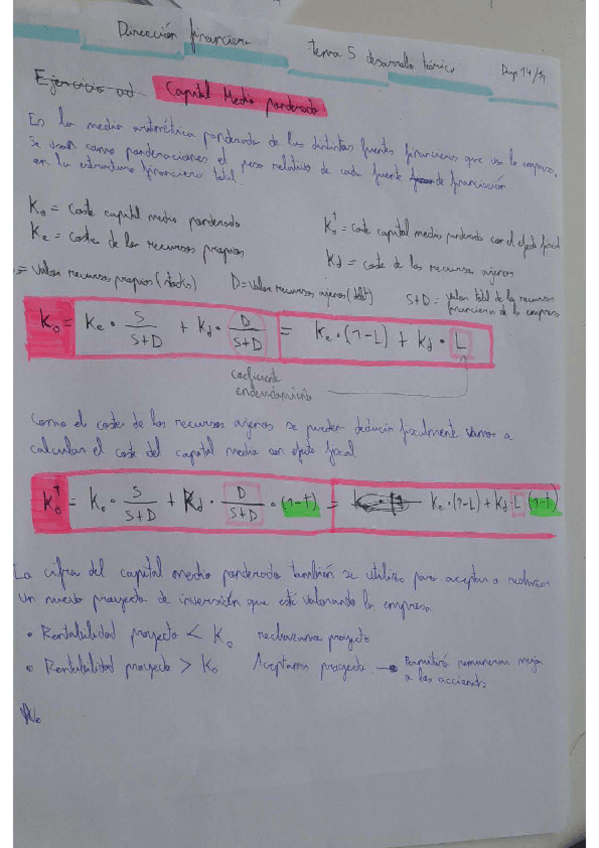 Dirección financiera
tema 5 desarrollo teórico
Pag 14/14
Ejercicio ad
Capital Medio ponderado
Es la media aritmética ponderada de las distintas fuentes financieras que usa la empresa.
Se usan como ponderaciones el peso relativo de cada fuente de financiación
en la estructura financiera total.
K₀ = Coste capital medio ponderado
Ke = Coste de los recursos propios
K₀ᵀ = Coste capital medio ponderado con el efecto fiscal
Kd = coste de los recursos ajenos
= Valor recursos propios (stocks)
D = Valor recursos ajenos (debt)
S+D = Valor total de los recursos
financieros de la empresa
K₀ = Ke · S/(S+D) + Kd · D/(S+D) = Ke · (1-L) + Kd · L
coeficiente
endeudamiento
Como el coste de los recursos ajenos se pueden deducir fiscalmente vamos a
calcular el coste del capital medio con efecto fiscal
K₀ᵀ = Ke · S/(S+D) + Kd · D/(S+D) · (1-t) = Ke · (1-L) + Kd · L (1-t)
La cifra del capital medio ponderado también se utiliza para aceptar o rechazar
un nuevo proyecto de inversión que esté valorando la empresa
• Rentabilidad proyecto < K₀ rechazamos proyecto
• Rentabilidad proyecto > K₀ Aceptamos proyecto → Permitirá remunerar mejor
a los accionistas